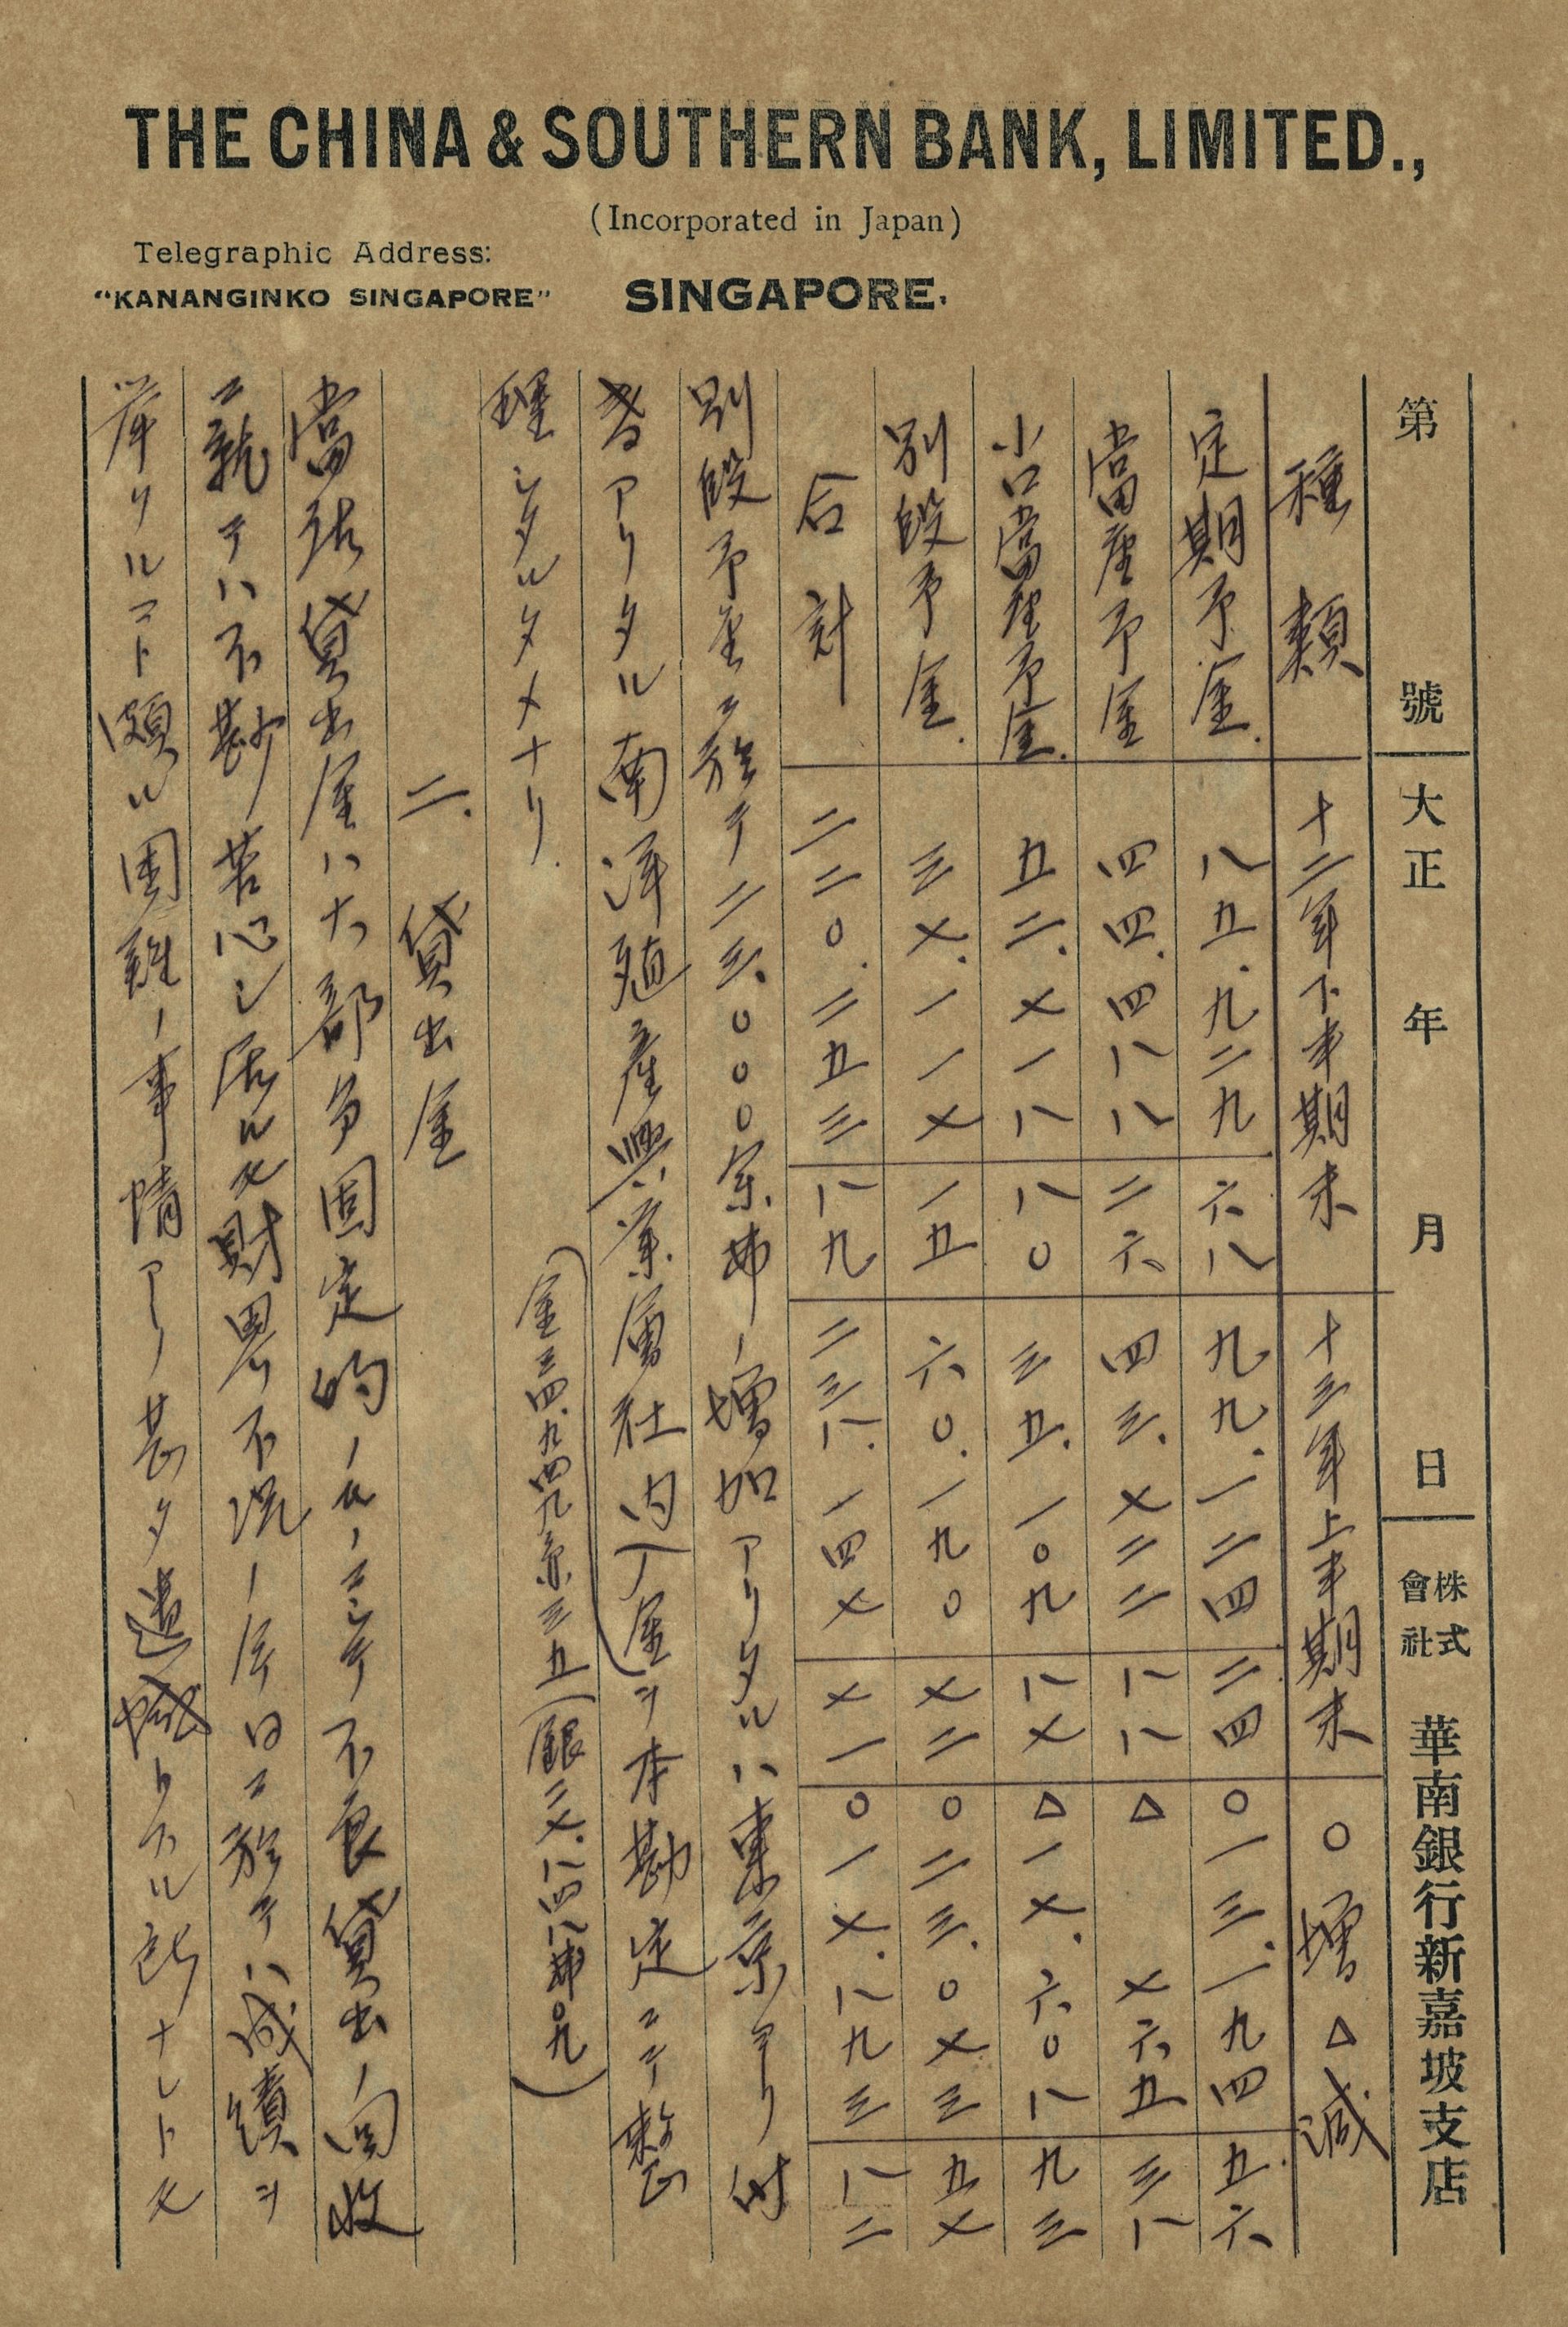 THE CHINA & SOUTHERN BANK, LIMITED.,
(Incorporated in Japan)
Telegraphic Address:
"KANANGINKO SINGAPORE"
SINGAPORE.
第 號 大正 年 月 日 株式會社 華南銀行新嘉坡支店
種類 十二年下半期末 十三年上半期末 ○増△減
定期予金. 八五.九二九 六八 九九.一二四 二四 ○一三.一九四 五六
當座予金 四四.四八八 二六 四三.七二二 八八 △七六五 三八
小口當座予金. 五二.七一八 八〇 三五.一〇九 八七 △一七.六〇八 九三
別段予金. 三七.一一七 一五 六〇.一九〇 七二 ○二三.〇七三 五七
合計 二二〇.二五三 八九 二三八.一四七 七一 ○一七.八九三 八二
別段予金ニ於テ二三、〇〇〇余弗ノ増加アリタルハ東京ヨリ付
替アリタル南洋殖産興業會社内入金ヲ本勘定ニテ整
(金三四.九四九三五(銀二七.八四八弗〇九)
理シタルタメナリ.
二.貸出金
當店貸出金ハ大部分固定的ノモノニシテ不良貸出ノ回收
ニ就テハ不尠苦心シ居ルモ財界不況ノ今日ニ於テハ成績ヲ
挙クルコト頗ル困難ノ事情アリ甚タ遺憾トスル所ナレトモ